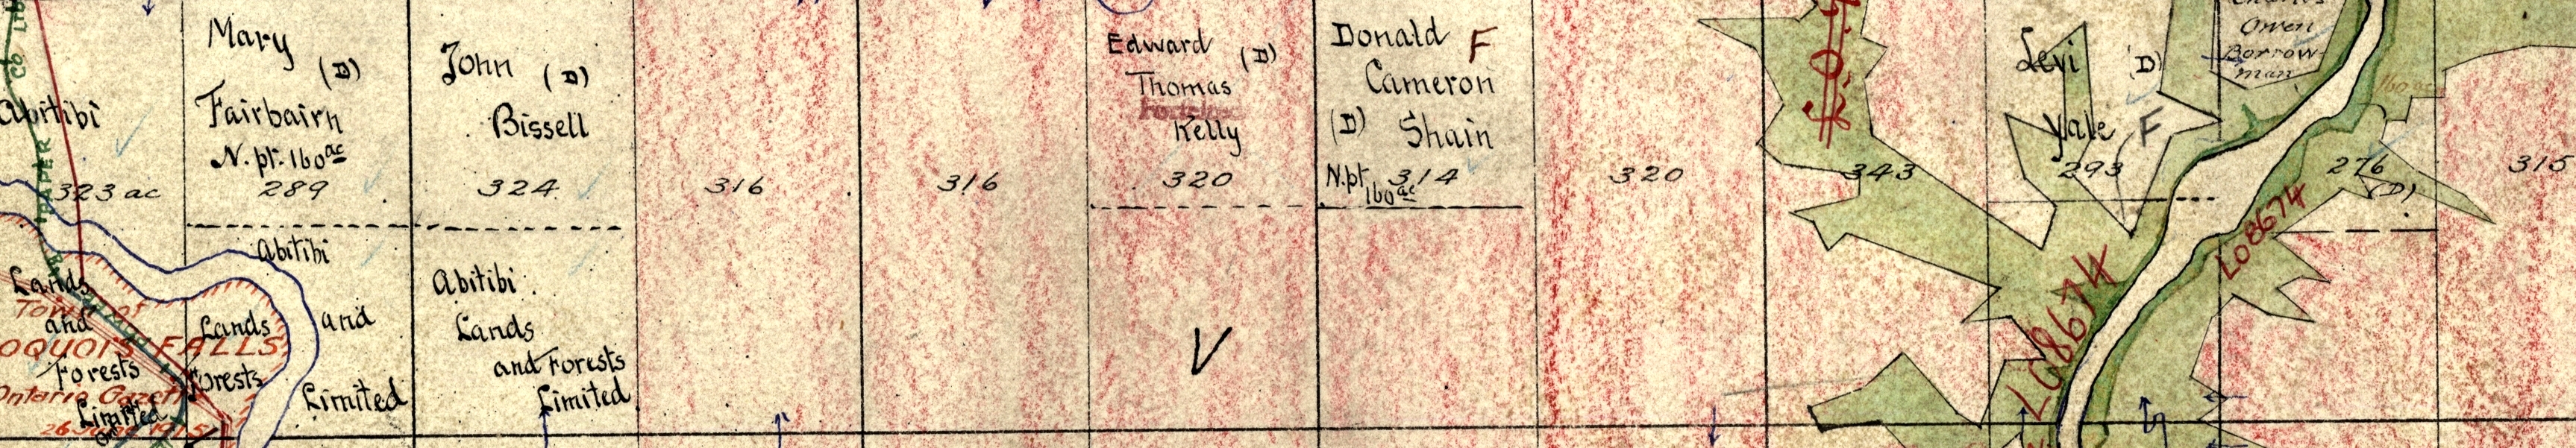 Abitibi
323 ac
Lands
and
Forests
Limited
PAPER
CO
Town of
OQUOIS FALLS
Ontario Gazette
Mary
(D)
Fairbairn
N. pt. 160 ac
289
Abitibi
Lands
and
Forests
Limited
John (D)
Bissell
324
Abitibi
Lands
and Forests
Limited
316
316
Edward (D)
Thomas
Kelly
320
V
Donald F
Cameron
(D) Shain
N.pt. 314
160 ac
320
343
Levi (D)
Yale F
293
Owen
Borrow-
man
L08674
L08674
276
(D)
315